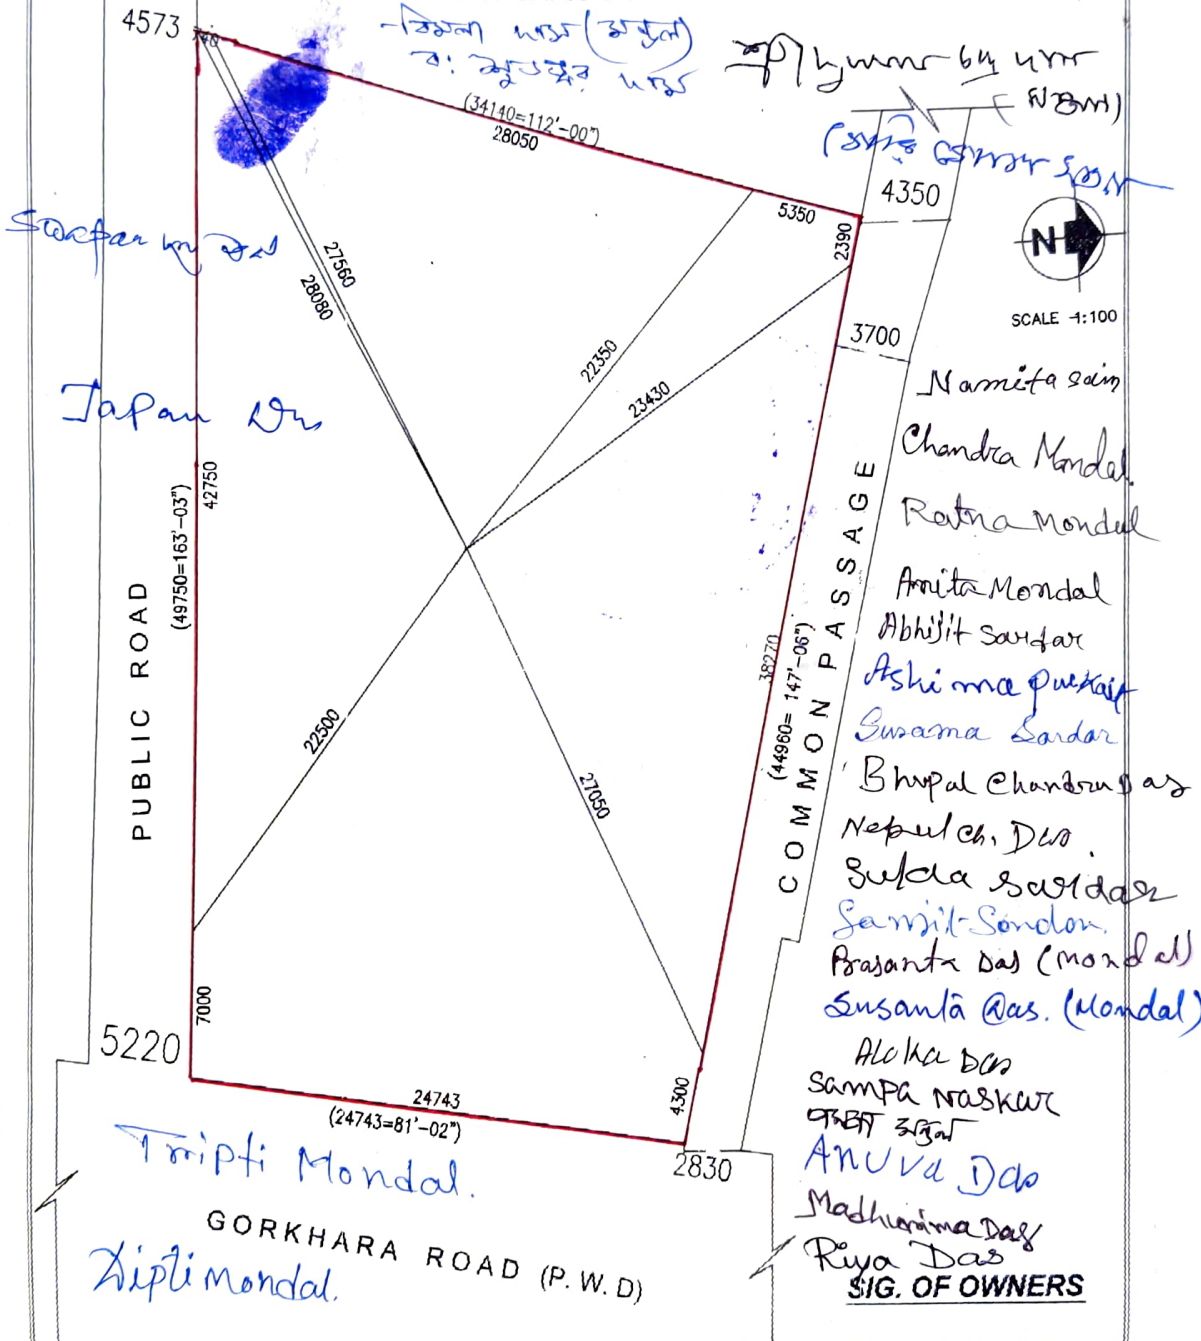 4573
740
(34140=112'-00")
28050
5350
2390
4350
N
SCALE 1:100
3700
27560
28080
22350
23430
42750
(49750=163'-03")
PUBLIC ROAD
22500
27050
38270
(44960= 147'-06")
COMMON PASSAGE
7000
5220
24743
(24743=81'-02")
4300
2830
GORKHARA ROAD (P.W.D)
Tripti Mondal.
Dipti Mondal.
Namita
Chandra Mondal
Ratna Mondal
Anita Mondal
Abhijit Sardar
Ashima Purkait
Susama Sardar
Bhupal Chandra Das
Nepal Ch. Das
Sardar
Prasanta Das (Mondal)
Susanta Das. (Mondal)
Aloka Das
Sampa Naskar
Anuva Das
Madhurima Das
Riya Das
SIG. OF OWNERS